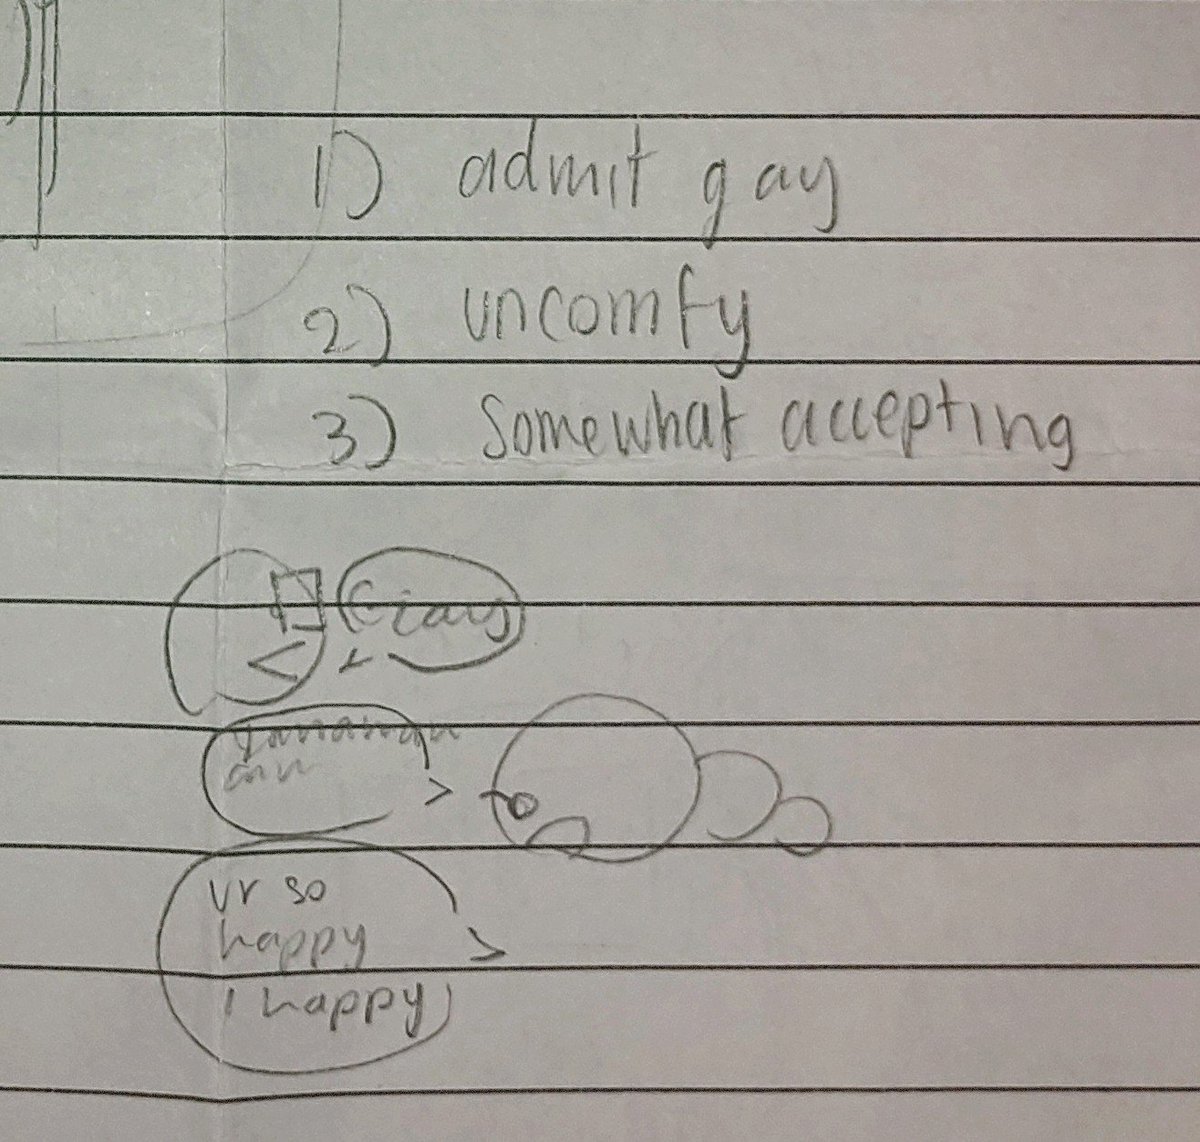 1) admit gay
2) uncomfy
3) somewhat accepting
ur so
happy
I happy